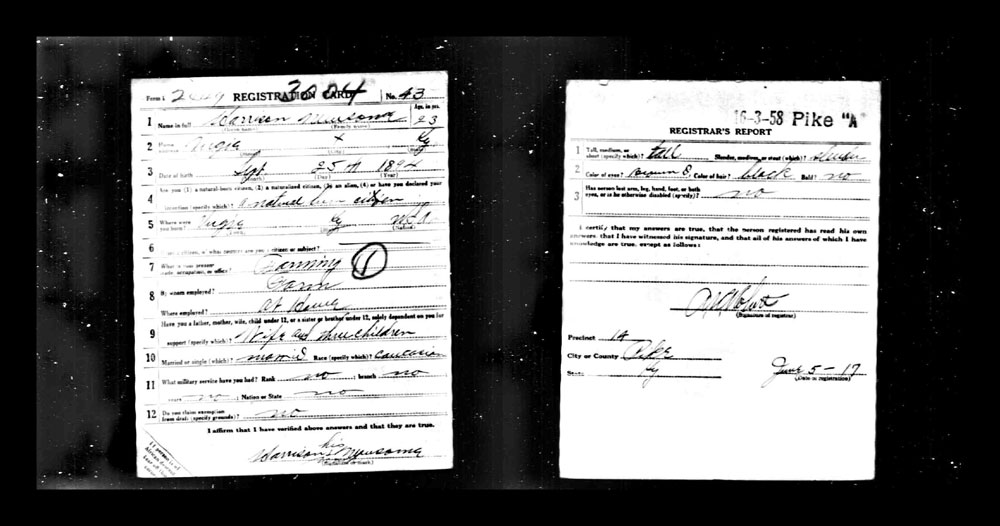 Form 1 3024 REGISTRATION CARD No. 43
1 Name in full Harrison Newsome Age, in yrs. 23
(Given name) (Family name)
2 Home address Virgie x Ky
3 Date of birth Sept. 25th 1894
(Month) (Day) (Year)
4 Are you (1) a natural-born citizen, (2) a naturalized citizen, (3) an alien, (4) or have you declared your
intention (specify which)? a natural born citizen
5 Where were you born? Virgie Ky
(Nation)
6 If not a citizen, of what country are you a citizen or subject?
7 What is your present trade, occupation, or office? Farming 1
8 By whom employed? Farm
Where employed? At Home
9 Have you a father, mother, wife, child under 12, or a sister or brother under 12, solely dependent on you for
support (specify which)? Wife and three children
10 Married or single (which)? married Race (specify which)? Caucasian
11 What military service have you had? Rank no ; branch no
years no ; Nation or State no
12 Do you claim exemption from draft (specify grounds)? no
I affirm that I have verified above answers and that they are true.
his
Harrison x Newsome
(Signature or mark)
If person is of African descent, tear off this corner
16-3-58 Pike "A"
REGISTRAR'S REPORT
1 Tall, medium, or short (specify which)? tall Slender, medium, or stout (which)? slender
2 Color of eyes? Brown Color of hair? black Bald? no
3 Has person lost arm, leg, hand, foot, or both eyes, or is he otherwise disabled (specify)? no
I certify that my answers are true, that the person registered has read his own
answers, that I have witnessed his signature, and that all of his answers of which I have
knowledge are true, except as follows:
(Signature of registrar)
Precinct 14
City or County Pike
State Ky June 5-17
(Date of registration)